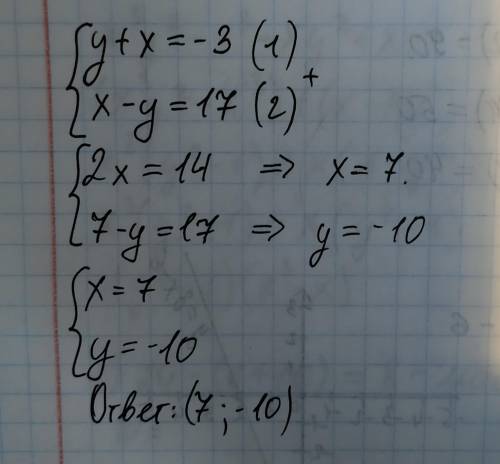 y + x = -3 (1)
+
x - y = 17 (2)
2x = 14 => x = 7.
7 - y = 17 => y = -10
x = 7
y = -10
Ответ: (7; -10)